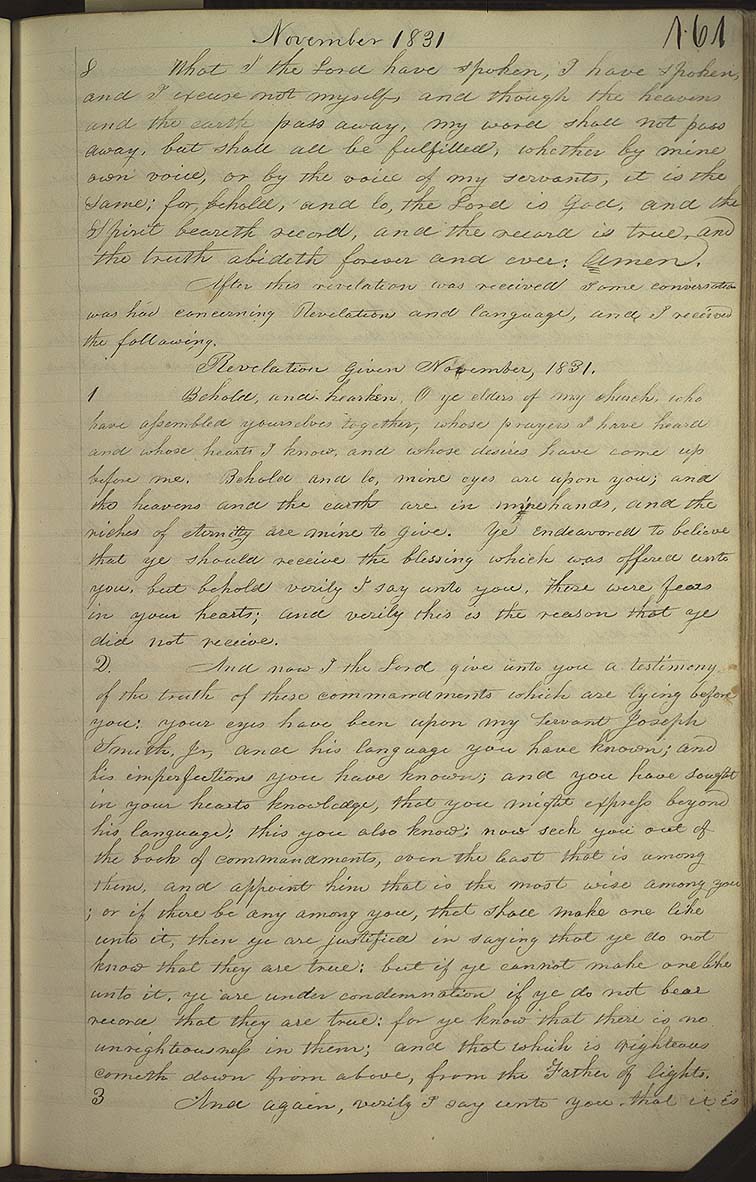 November 1831
161
8 What I the Lord have spoken, I have spoken,
and I excuse not myself, and though the heavens
and the earth pass away, my word shall not pass
away, but shall all be fulfilled, whether by mine
own voice, or by the voice of my servants, it is the
same; for, behold, and lo, the Lord is God, and the
Spirit beareth record, and the record is true, and
the truth abideth forever and ever: Amen.
After this revelation was received some conversation
was had concerning Revelation and language, and I received
the following.
Revelation given November, 1831.
1 Behold, and hearken, O ye elders of my church, who
have assembled yourselves together, whose prayers I have heard
and whose hearts I know, and whose desires have come up
before me. Behold and lo, mine eyes are upon you; and
the heavens and the earth are in mine hands, and the
riches of eternity are mine to give. Ye endeavored to believe
that ye should receive the blessing which was offered unto
you, but behold verily I say unto you, there were fears
in your hearts; and verily this is the reason that ye
did not receive.
2. And now I the Lord give unto you a testimony
of the truth of these commandments which are lying before
you: your eyes have been upon my servant Joseph
Smith, Jr, and his language you have known; and
his imperfections you have known; and you have sought
in your hearts knowledge, that you might express beyond
his language; this you also know: now seek you out of
the book of commandments, even the least that is among
them, and appoint him that is the most wise among you
; or if there be any among you, that shall make one like
unto it, then ye are justified in saying that ye do not
know that they are true: but if ye cannot make one like
unto it, ye are under condemnation if ye do not bear
record that they are true: for ye know that there is no
unrighteousness in them; and that which is righteous
cometh down from above, from the Father of lights.
3 And again, verily I say unto you that it is